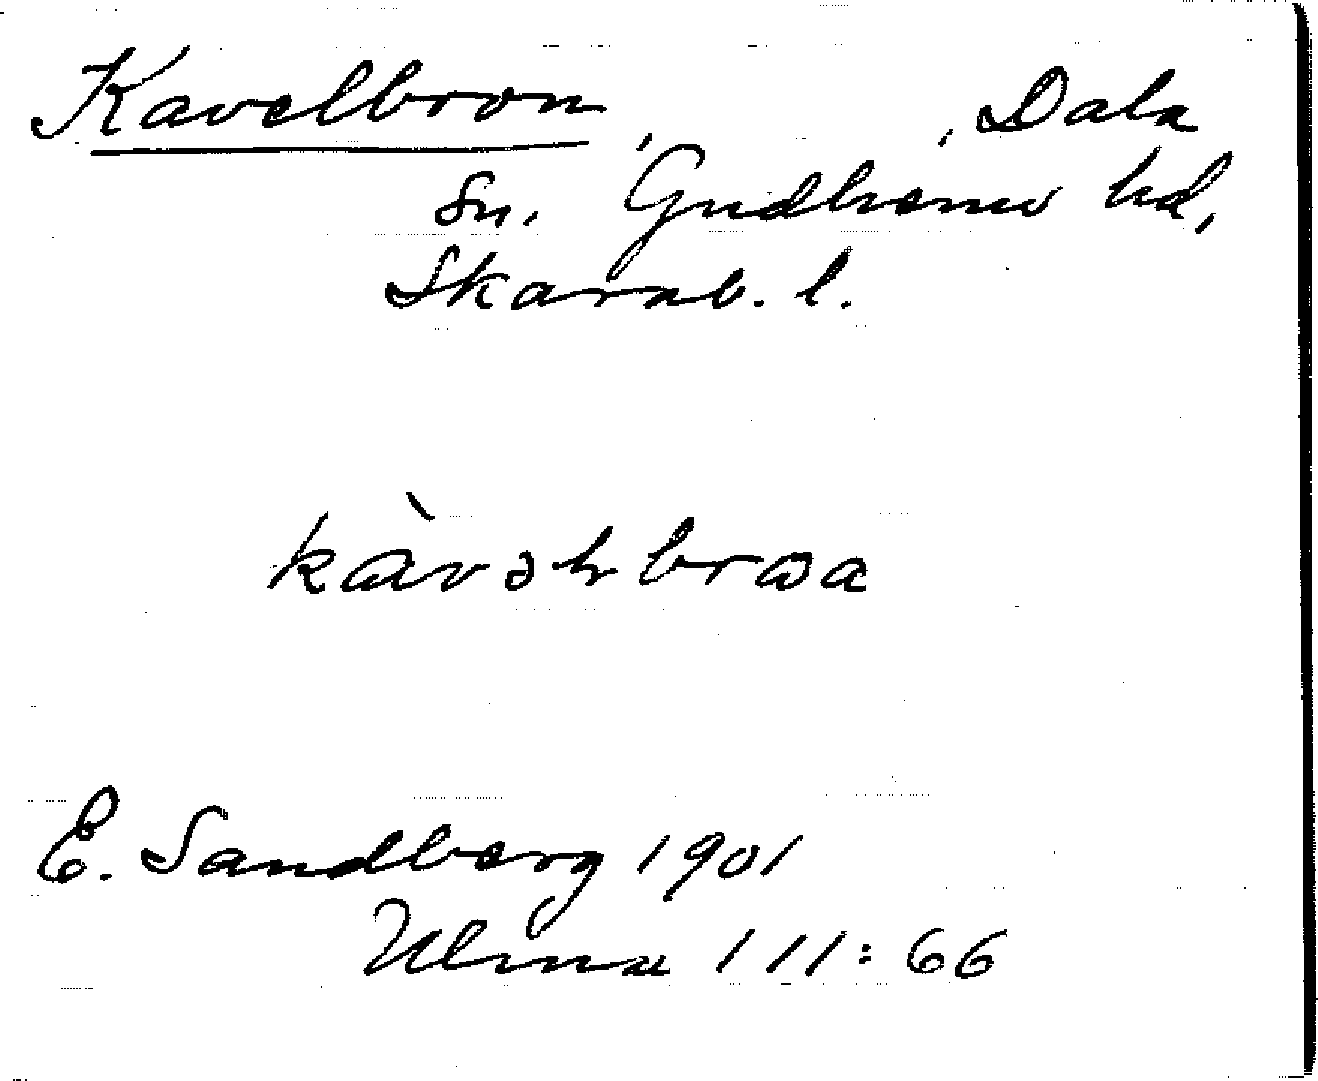 Kavelbron, , Dala
Sn. Gudhems hd,
Skarab. l.
kàvəɫbrωa
E. Sandberg 1901
Ulma 111:66